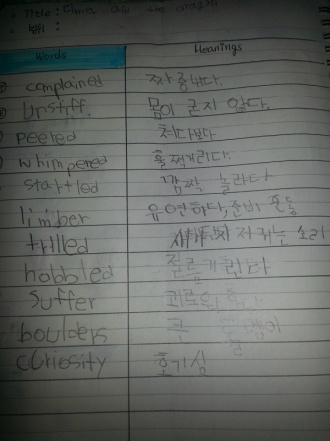 Title : Elma and the dragon
범위 :
Words Meanings
complained 짜증내다.
unstiff 몸이 굳지 않다.
peered 쳐다보다
whimpered 훌쩍거리다.
startled 깜짝 놀라다
limber 유연하다, 준비 운동
trilled 지저귀는 소리
hobbled 절르게 한다
suffer
boulders 큰
curiosity 호기심